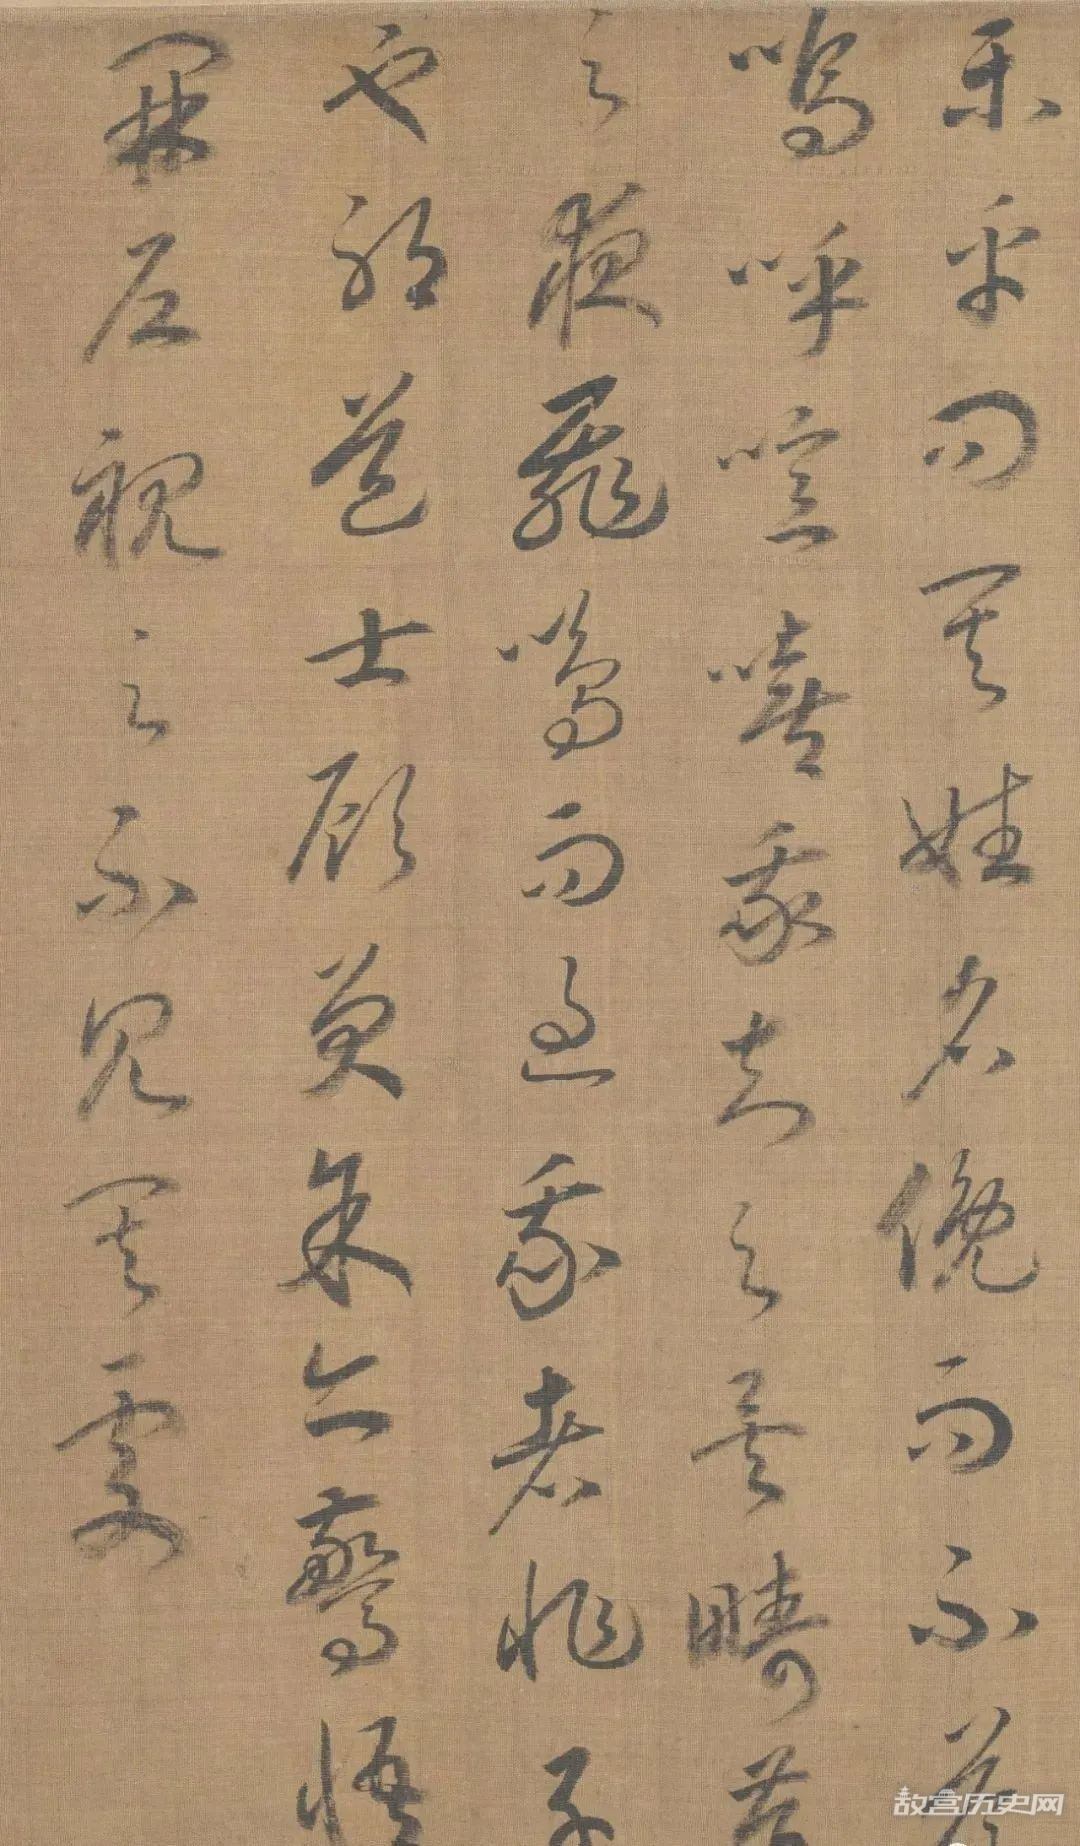 樂乎問其姓名俛而不答
嗚呼噫嘻我知之矣疇昔
之夜飛鳴而過我者非子
也耶道士顧笑余亦驚悟
開戶視之不見其處
故宫历史网